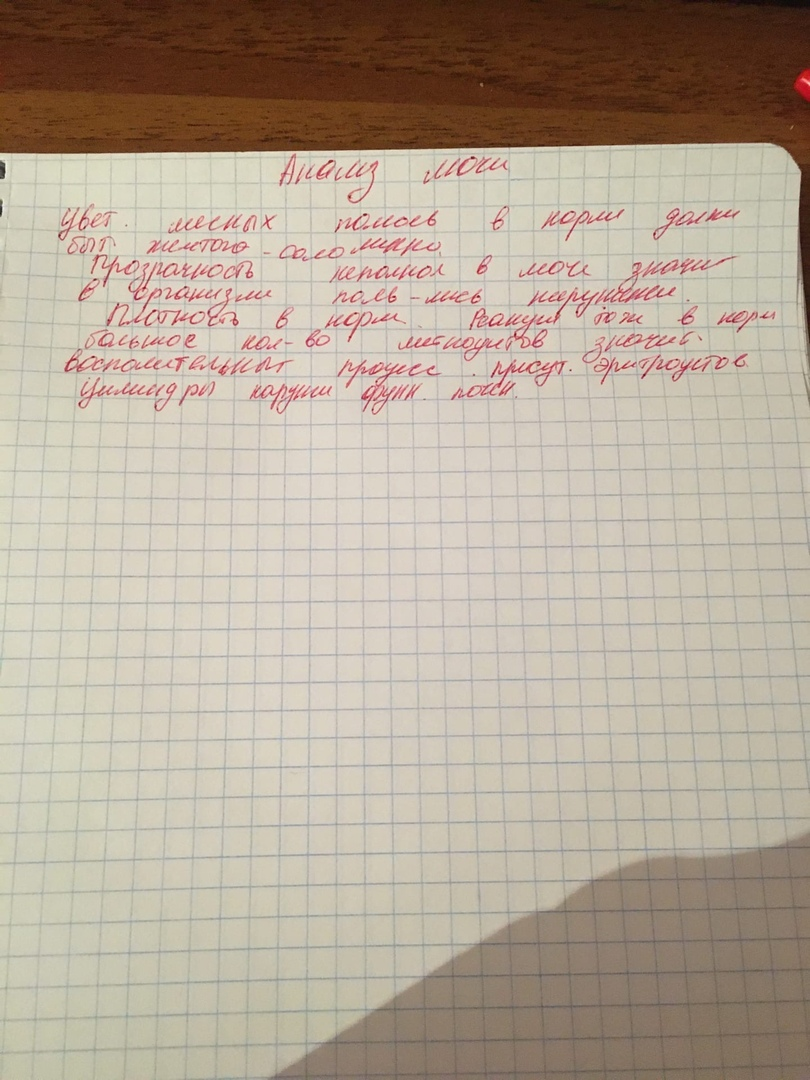 Анализ мочи
Цвет. мясных помоев в норми должн
быт желтого - соломинно
Прозрачность неполнал в мочи значит
в организми появ-лись нарушени.
Плотность в норм. Реакция тоже в норм
большое кол-во лейкоцитов значит.
воспалительныт процесс. присут. эритроцитов.
Цилиндры наруши функ. почек.